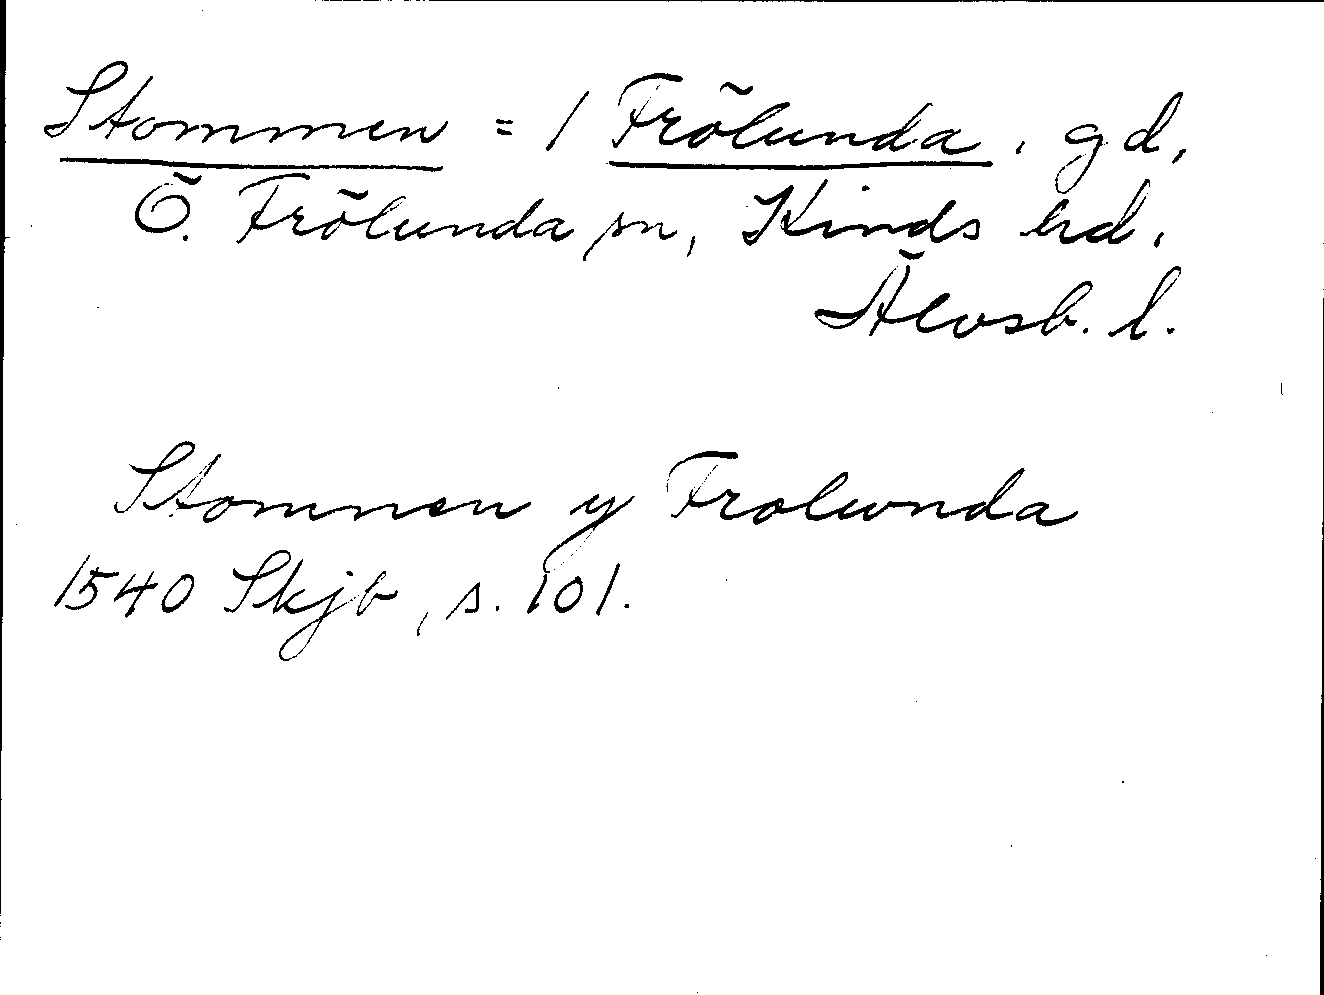 Stommen = 1 Frölunda, gd,
Ö. Frölunda sn, Kinds hd,
Älvsb. l.
Stommen y Frolunda
1540 Skjb, s. 101.